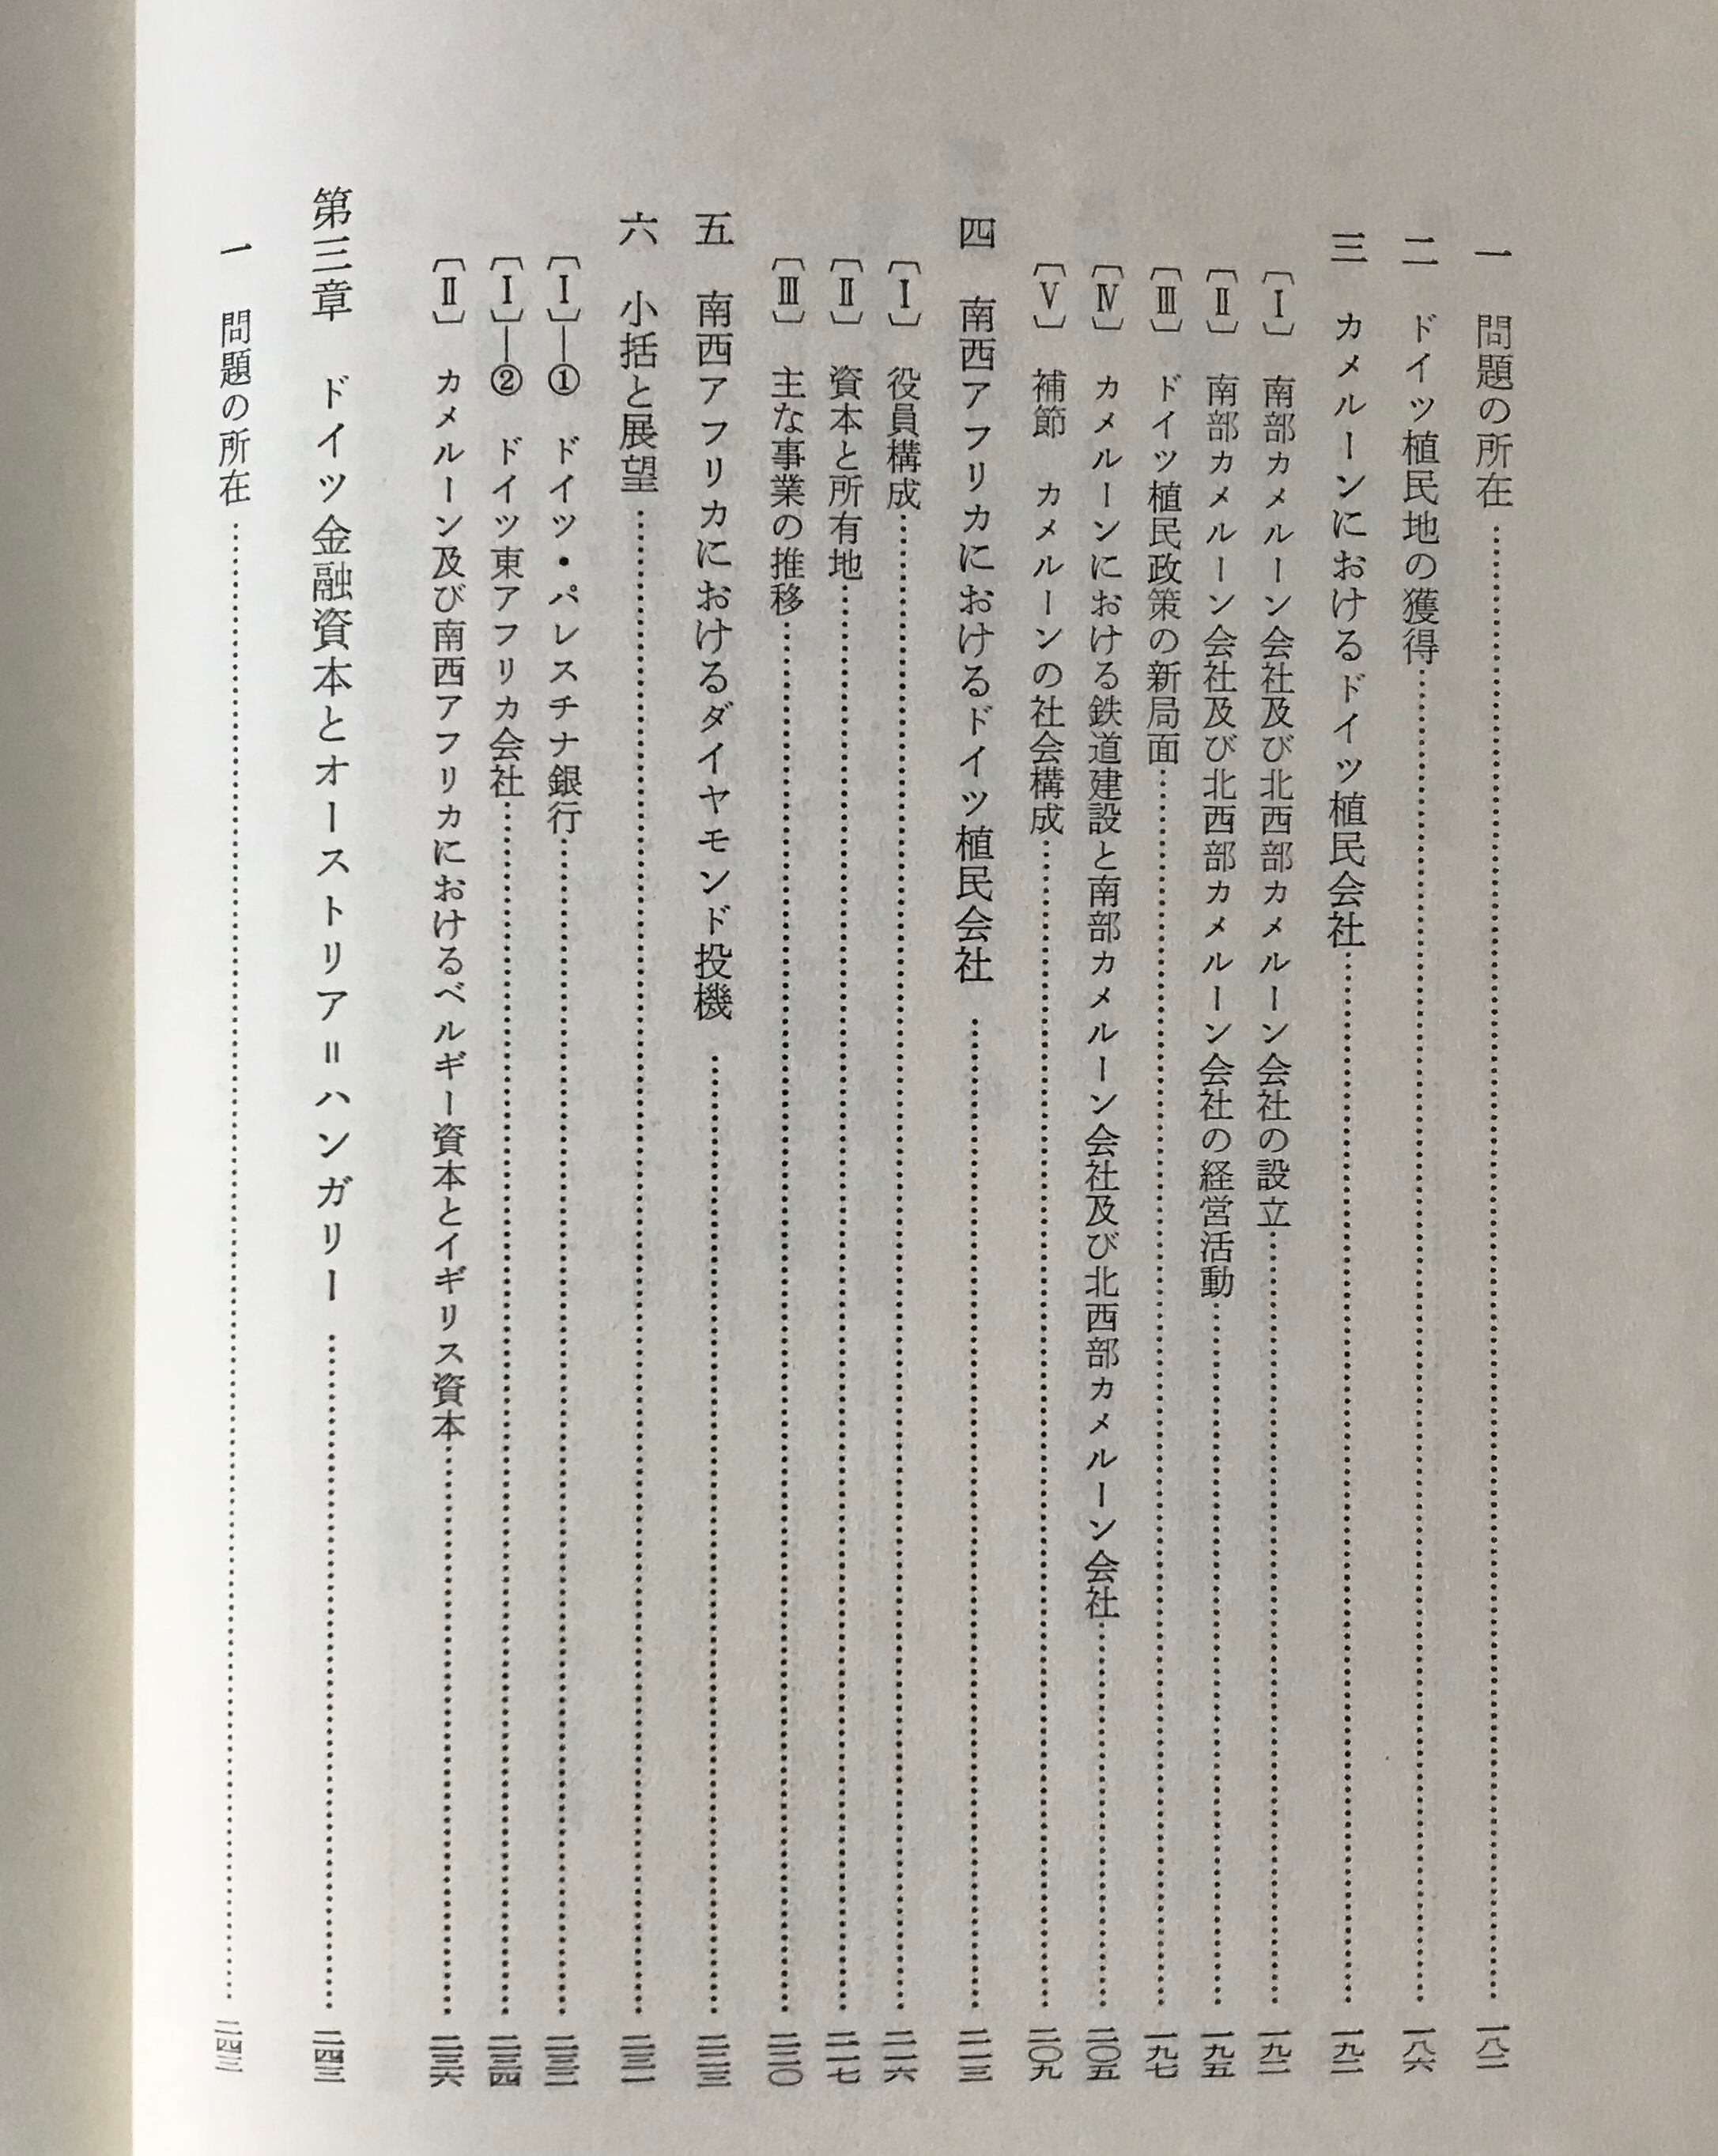 一　問題の所在……一八一
二　ドイツ植民地の獲得……一八六
三　カメルーンにおけるドイツ植民会社……一九二
〔Ⅰ〕　南部カメルーン会社及び北西部カメルーン会社の設立……一九二
〔Ⅱ〕　南部カメルーン会社及び北西部カメルーン会社の経営活動……一九五
〔Ⅲ〕　ドイツ植民政策の新局面……一九七
〔Ⅳ〕　カメルーンにおける鉄道建設と南部カメルーン会社及び北西部カメルーン会社……二〇五
〔Ⅴ〕　補節　カメルーンの社会構成……二〇九
四　南西アフリカにおけるドイツ植民会社……二一三
〔Ⅰ〕　役員構成……二一六
〔Ⅱ〕　資本と所有地……二一七
〔Ⅲ〕　主な事業の推移……二二〇
五　南西アフリカにおけるダイヤモンド投機……二二三
六　小括と展望……二三一
〔Ⅰ〕―①　ドイツ・パレスチナ銀行……二三二
〔Ⅰ〕―②　ドイツ東アフリカ会社……二三四
〔Ⅱ〕　カメルーン及び南西アフリカにおけるベルギー資本とイギリス資本……二三六
第三章　ドイツ金融資本とオーストリア＝ハンガリー……二四三
一　問題の所在……二四三